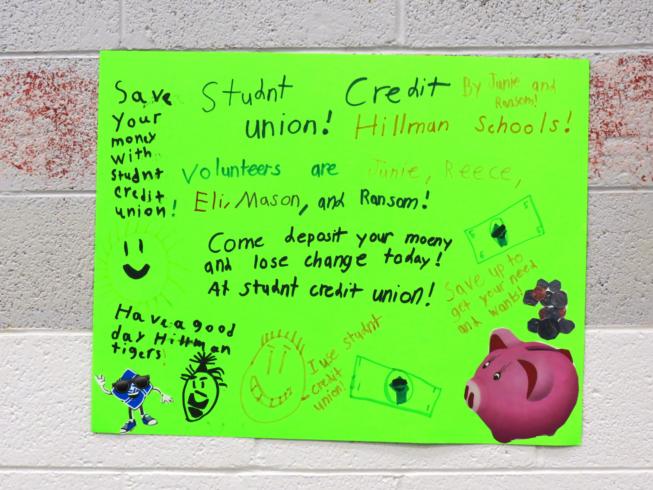 Save
Your
money
with
studnt
credit
union!
Studnt Credit
union!
By Junie and
Ransom!
Hillman Schools!
Volunteers are Junie, Reece,
Eli, Mason, and Ransom!
Come deposit your moeny
and lose change today!
At studnt credit union!
Save up to
get your need
and wants!
Have a good
day Hillman
tigers!
I use studnt
credit
union!